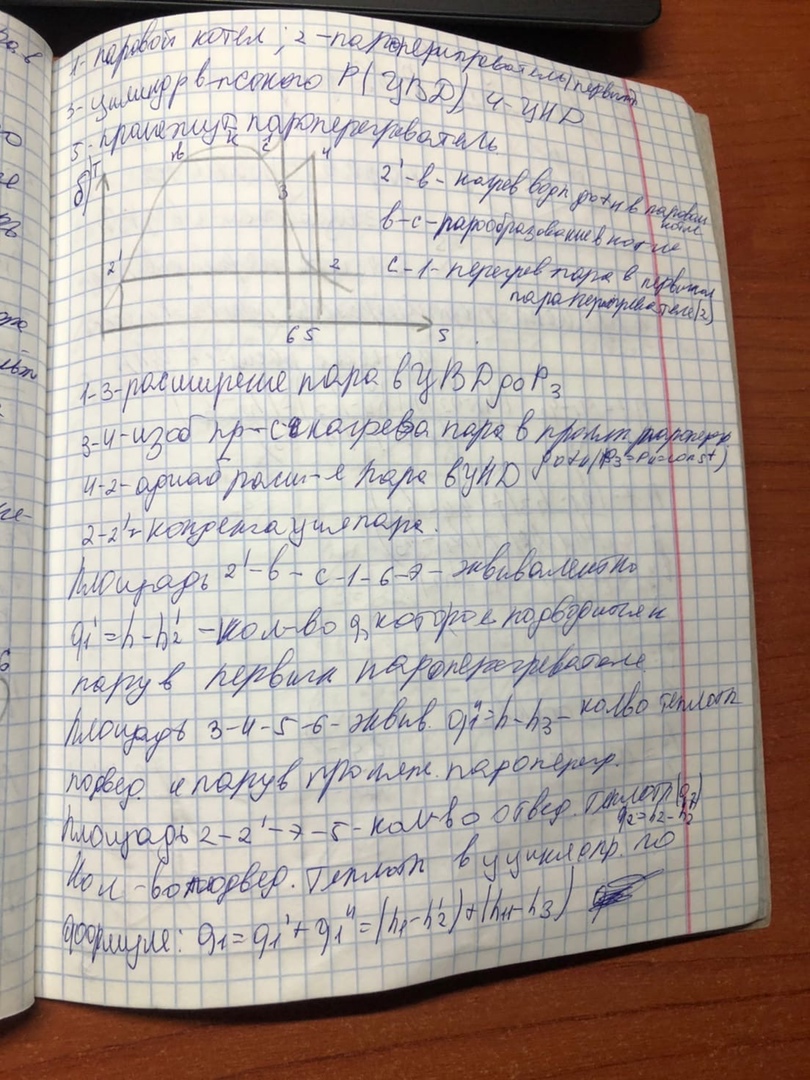 1-паровой котел; 2-пароперегреватель(первичн)
3-цилиндр высокого Р(ЦВД) 4-ЦНД
5-промежут пароперегреватель.
б) T в к с 4
3
2'-в-нагрев воды до tн в паровом котле
в-с-парообразование в котле
2' 2
с-1-перегрев пара в первичном
пароперегревателе(2)
6 5 S
1-3-расширение пара в ЦВД до P3
3-4-изоб пр-с нагрева пара в пром пароперег
до t4 (P3=P4=const)
4-2-адиаб расш-е пара в ЦНД
2-2'-конденсация пара.
Площадь 2'-в-с-1-6-7-эквивалентно
q1'=h-h2'-кол-во q, которое подводиться к
пару в первичн пароперегревателе
Площадь 3-4-5-6-эквив. q1"=h-h3-кол-во теплоты
подвед. к пару в промеж. пароперегр.
Площадь 2-2'-7-5-кол-во отвед. теплоты(q2)
q2=h2-h2'
Кол-во подвед. теплоты в цикле опр. по
формуле: q1=q1'+q1"=(h1-h2')+(h4-h3)